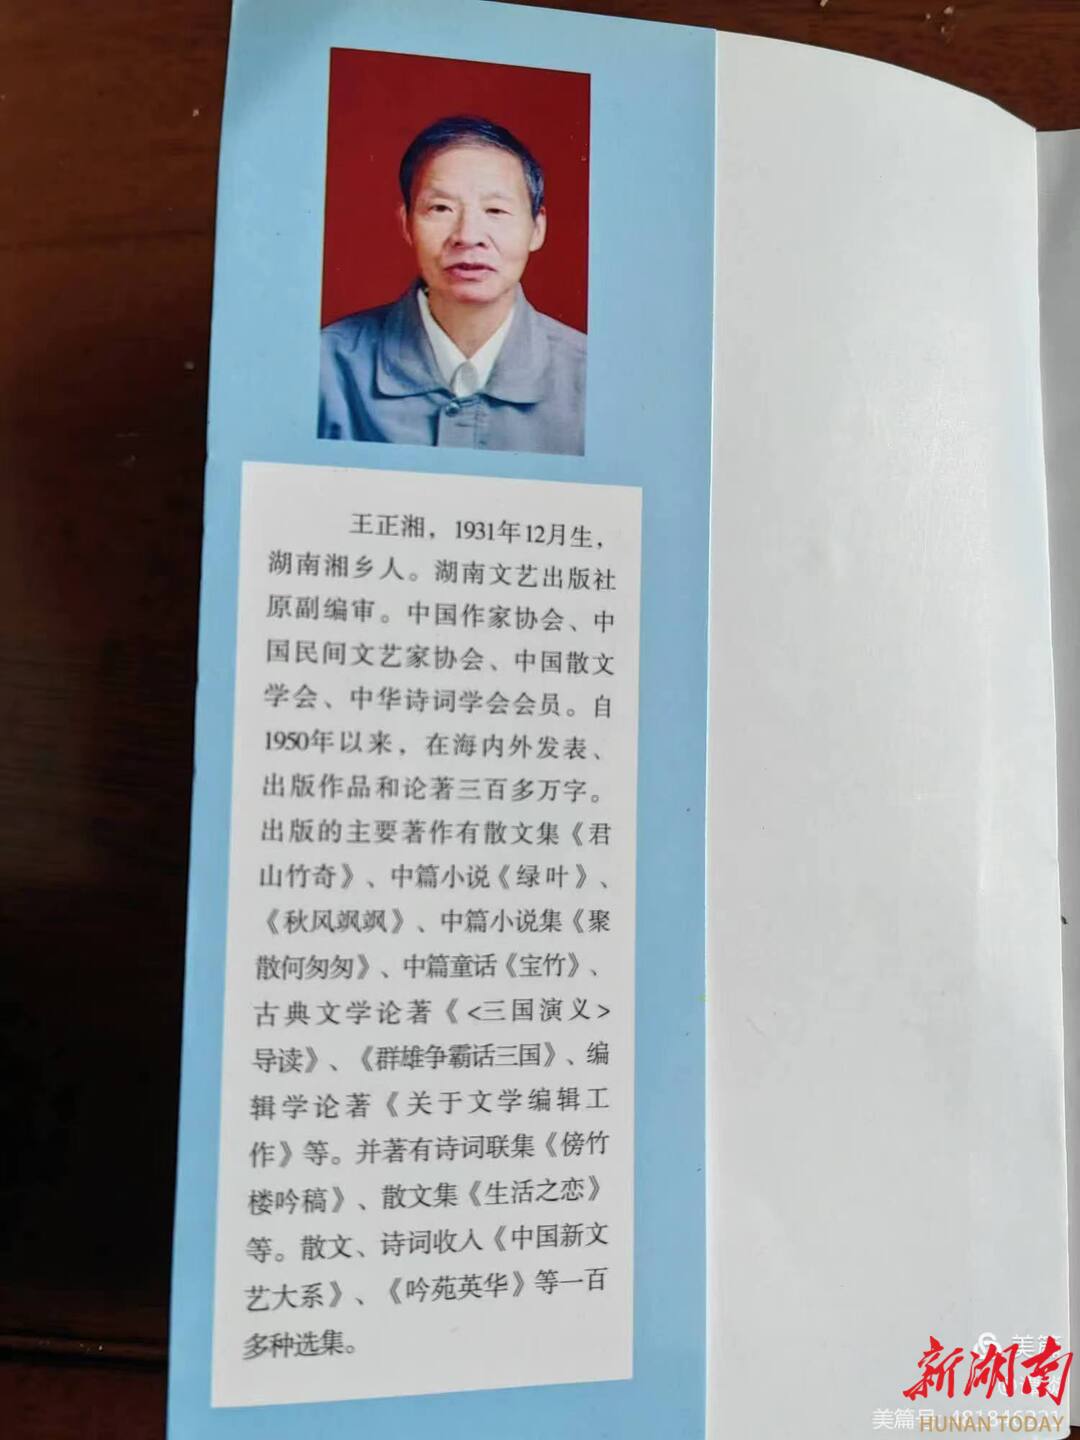 王正湘，1931年12月生，
湖南湘乡人。湖南文艺出版社
原副编审。中国作家协会、中
国民间文艺家协会、中国散文
学会、中华诗词学会会员。自
1950年以来，在海内外发表、
出版作品和论著三百多万字。
出版的主要著作有散文集《君
山竹奇》、中篇小说《绿叶》、
《秋风飒飒》、中篇小说集《聚
散何匆匆》、中篇童话《宝竹》、
古典文学论著《<三国演义>
导读》、《群雄争霸话三国》、编
辑学论著《关于文学编辑工
作》等。并著有诗词联集《傍竹
楼吟稿》、散文集《生活之恋》
等。散文、诗词收入《中国新文
艺大系》、《吟苑英华》等一百
多种选集。
美篇
新湖南
美篇号
HUNAN TODAY